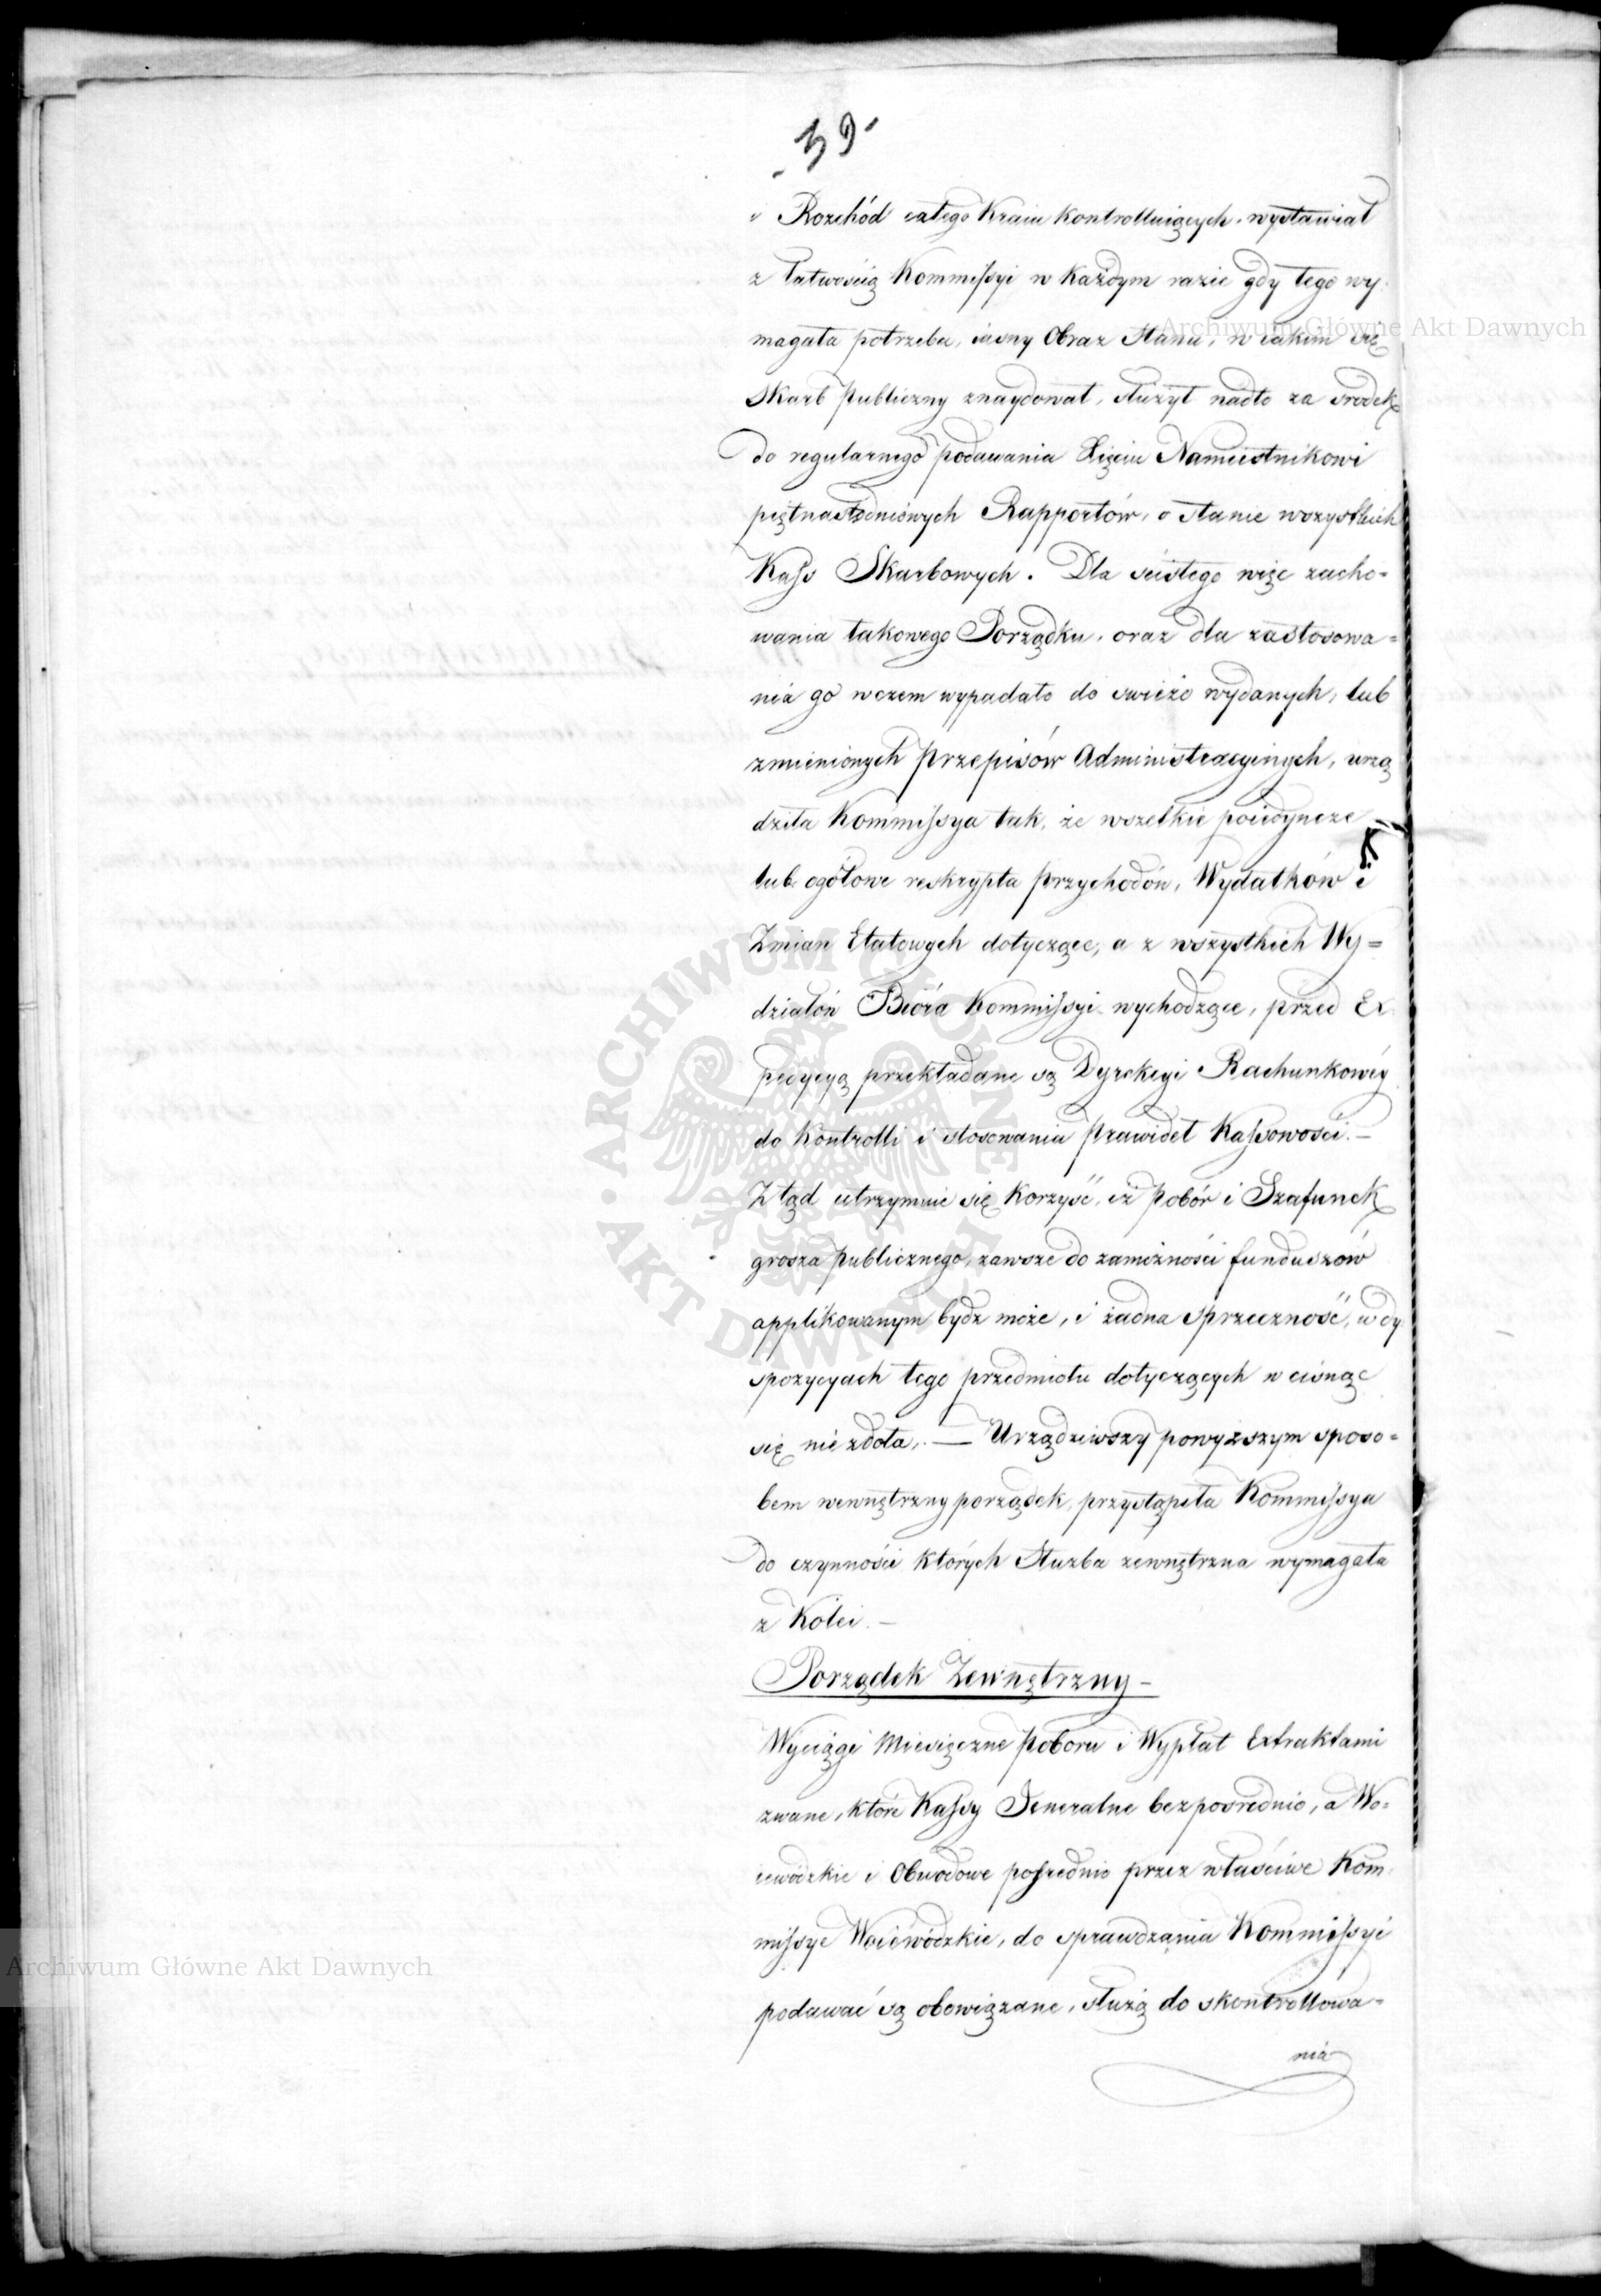 39
i Rozchód całego Kraiu kontrolluiących, wystawiał
z łatwością Kommissyi w każdym razie gdy tego wy-
magała potrzeba, iasny Obraz stanu, w iakim się
Skarb publiczny znaydował, służył nadto za srodek
do regularnego podawania Xięciu Namiestnikowi
piętnastodniowych Rapportów, o stanie wszystkich
Kass Skarbowych. Dla ścisłego więc zacho=
wania takowego Porządku, oraz dla zastosowa=
nia go w czem wypadało do swieżo wydanych, lub
zmienionych przepisów Administracyinych, urzą
dziła Kommissya tak, że wszelkie poiedyncze
lub ogółowe reskrypta przychodów, Wydatków i
Zmian Etatowych dotyczące, a z wszystkich Wy=
działów Bióra Kommissyi wychodzące, przed Ex
pedycyą przekładane są Dyrekcyi Rachunkowéy
do Kontrolli i stosowania prawideł Kassowości.—
Ztąd utrzymuie się korzyść, iż pobór i Szafunek
grosza publicznego, zawsze do zamożności funduszów
applikowanym bydź może, i żadna sprzeczność, w dy
spozycyach tego przedmiotu dotyczących wcisnąć
się nie zdoła. — Urządziwszy powyższym sposo=
bem wewnętrzny porządek, przystąpiła Kommissya
do czynności których służba zewnętrzna wymagała
z Kolei.—
Porządek Zewnętrzny—
Wyciągi Miesięczne poboru i Wypłat Extraktami
zwane, które Kassy Jeneralne bezpośrednio, a Wo=
iewódzkie i Obwodowe pośrednio przez właściwe Kom
missye Woiewódzkie, do sprawdzania Kommissyi
podawać są obowiązane, służą do skontrollowa=
nia
Archiwum Główne Akt Dawnych
Archiwum Główne Akt Dawnych
ARCHIWUM GŁÓWNE · AKT DAWNYCH ·